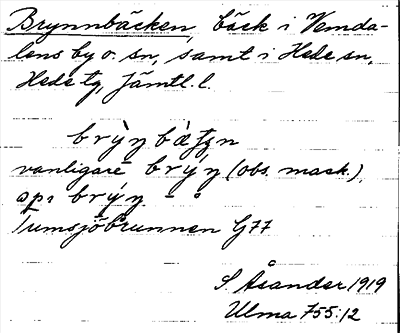 Brynnbäcken, bäck i Vemda-
lens by o. sn, samt i Hede sn,
Hede tg, Jämtl. l.
vanligare brýn (obs. mask.),
Tumsjöbrunnen G77
S. Åsander 1919
Ulma 755:12